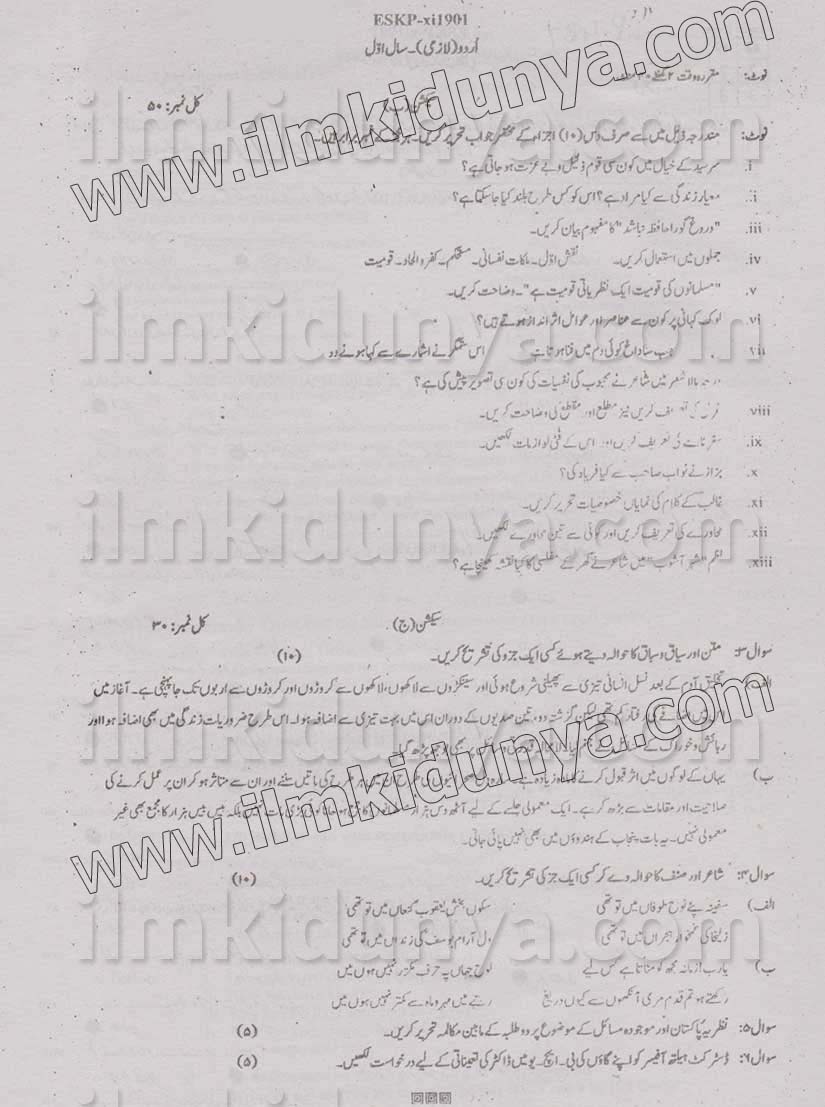 ESKP-xi1901
اُردو (لازمی)۔ سال اوّل
نوٹ: مقررہ وقت ۲ گھنٹے
کل نمبر: ۵۰
نوٹ: مندرجہ ذیل میں سے صرف دس (۱۰) اجزاء کے مختصر جواب تحریر کریں۔
i. سرسید کے خیال میں کون سی قوم ذلیل و بے عزت ہو جاتی ہے؟
معیار زندگی سے کیا مراد ہے؟ اس کو کس طرح بلند کیا جا سکتا ہے؟
iii. "دروغ گورا حافظہ نباشد" کا مفہوم بیان کریں۔
iv. جملوں میں استعمال کریں۔ نقش اوّل۔ ملکات نفسانی۔ مستحکم۔ کفر و الحاد۔ قومیت
v. "مسلمانوں کی قومیت ایک نظریاتی قومیت ہے"۔ وضاحت کریں۔
vi. لوک کہانی پر کون سے عناصر اور عوامل اثر انداز ہوتے ہیں؟
داغ کوئی دم میں فنا ہوتا ہے اس ستمگر نے اشارے سے کہا ہونے دو
شعر میں شاعر نے محبوب کی نفسیات کی کون سی تصویر پیش کی ہے؟
viii کریں نیز مطلع اور مقطع کی وضاحت کریں۔
ix. اس کے فنی لوازمات لکھیں۔
x. بزاز نے نواب صاحب سے کیا فریاد کی؟
xi. غالب کے کلام کی نمایاں خصوصیات تحریر کریں۔
xii. محاورے کی تعریف کریں اور کوئی سے تین محاورے لکھیں۔
xiii. نظم "شہر آشوب" میں شاعر نے گھر کے مفلسی کا کیا نقشہ کھینچا ہے؟
سیکشن (ج) کل نمبر: ۳۰
سوال ۳: متن اور سیاق و سباق کا حوالہ دیتے ہوئے کسی ایک جزو کی تشریح کریں۔ (۱۰)
الف) تخلیق آدم کے بعد نسل انسانی تیزی سے پھیلنی شروع ہوئی اور سینکڑوں سے لاکھوں، لاکھوں سے کروڑوں اور کروڑوں سے اربوں تک جا پہنچی ہے۔ آغاز میں
لیکن گزشتہ دو، تین صدیوں کے دوران اس میں بہت تیزی سے اضافہ ہوا۔ اس طرح ضروریات زندگی میں بھی اضافہ ہوا اور
رہائش و خوراک کے بڑھ گیا۔
ب) یہاں کے لوگوں میں اثر قبول کرنے کا زیادہ ہے۔ باتیں سننے اور ان سے متاثر ہو کر ان پر عمل کرنے کی
صلاحیت اور مقامات سے بڑھ کر ہے۔ ایک معمولی جلسے کے لیے آٹھ دس ہزار بلکہ بیس بیس ہزار کا مجمع بھی غیر
معمولی نہیں۔ یہ بات پنجاب کے ہندوؤں میں بھی نہیں پائی جاتی۔
سوال ۴: شاعر اور صنف کا حوالہ دے کر کسی ایک جز کی تشریح کریں۔ (۱۰)
الف) سفینہ پئے نوح طوفاں میں تو تھی سکوں بخش یعقوب کنعاں میں تو تھی
زلیخا کی غمخوار ہجراں میں تو تھی دل آرام یوسف کی زنداں میں تو تھی
ب) یارب! زمانہ مجھ کو مٹاتا ہے کس لیے لوح جہاں پہ حرف مکرر نہیں ہوں میں
رکھتے ہو تم قدم مری آنکھوں سے کیوں دریغ رتبے میں مہر و ماہ سے کمتر نہیں ہوں میں
سوال ۵: نظریہ پاکستان اور موجودہ مسائل کے موضوع پر دو طلبہ کے مابین مکالمہ تحریر کریں۔ (۵)
سوال ۶: ڈسٹرکٹ ہیلتھ آفیسر کو اپنے گاؤں کی بی۔ ایچ۔ یو میں ڈاکٹر کی تعیناتی کے لیے درخواست لکھیں۔ (۵)
www.ilmkidunya.com
ilmkidunya.com
ilmkidunya.com
ilmkidunya.com
ilmkidunya.com
www.ilmkidunya.com
ilmkidunya.com